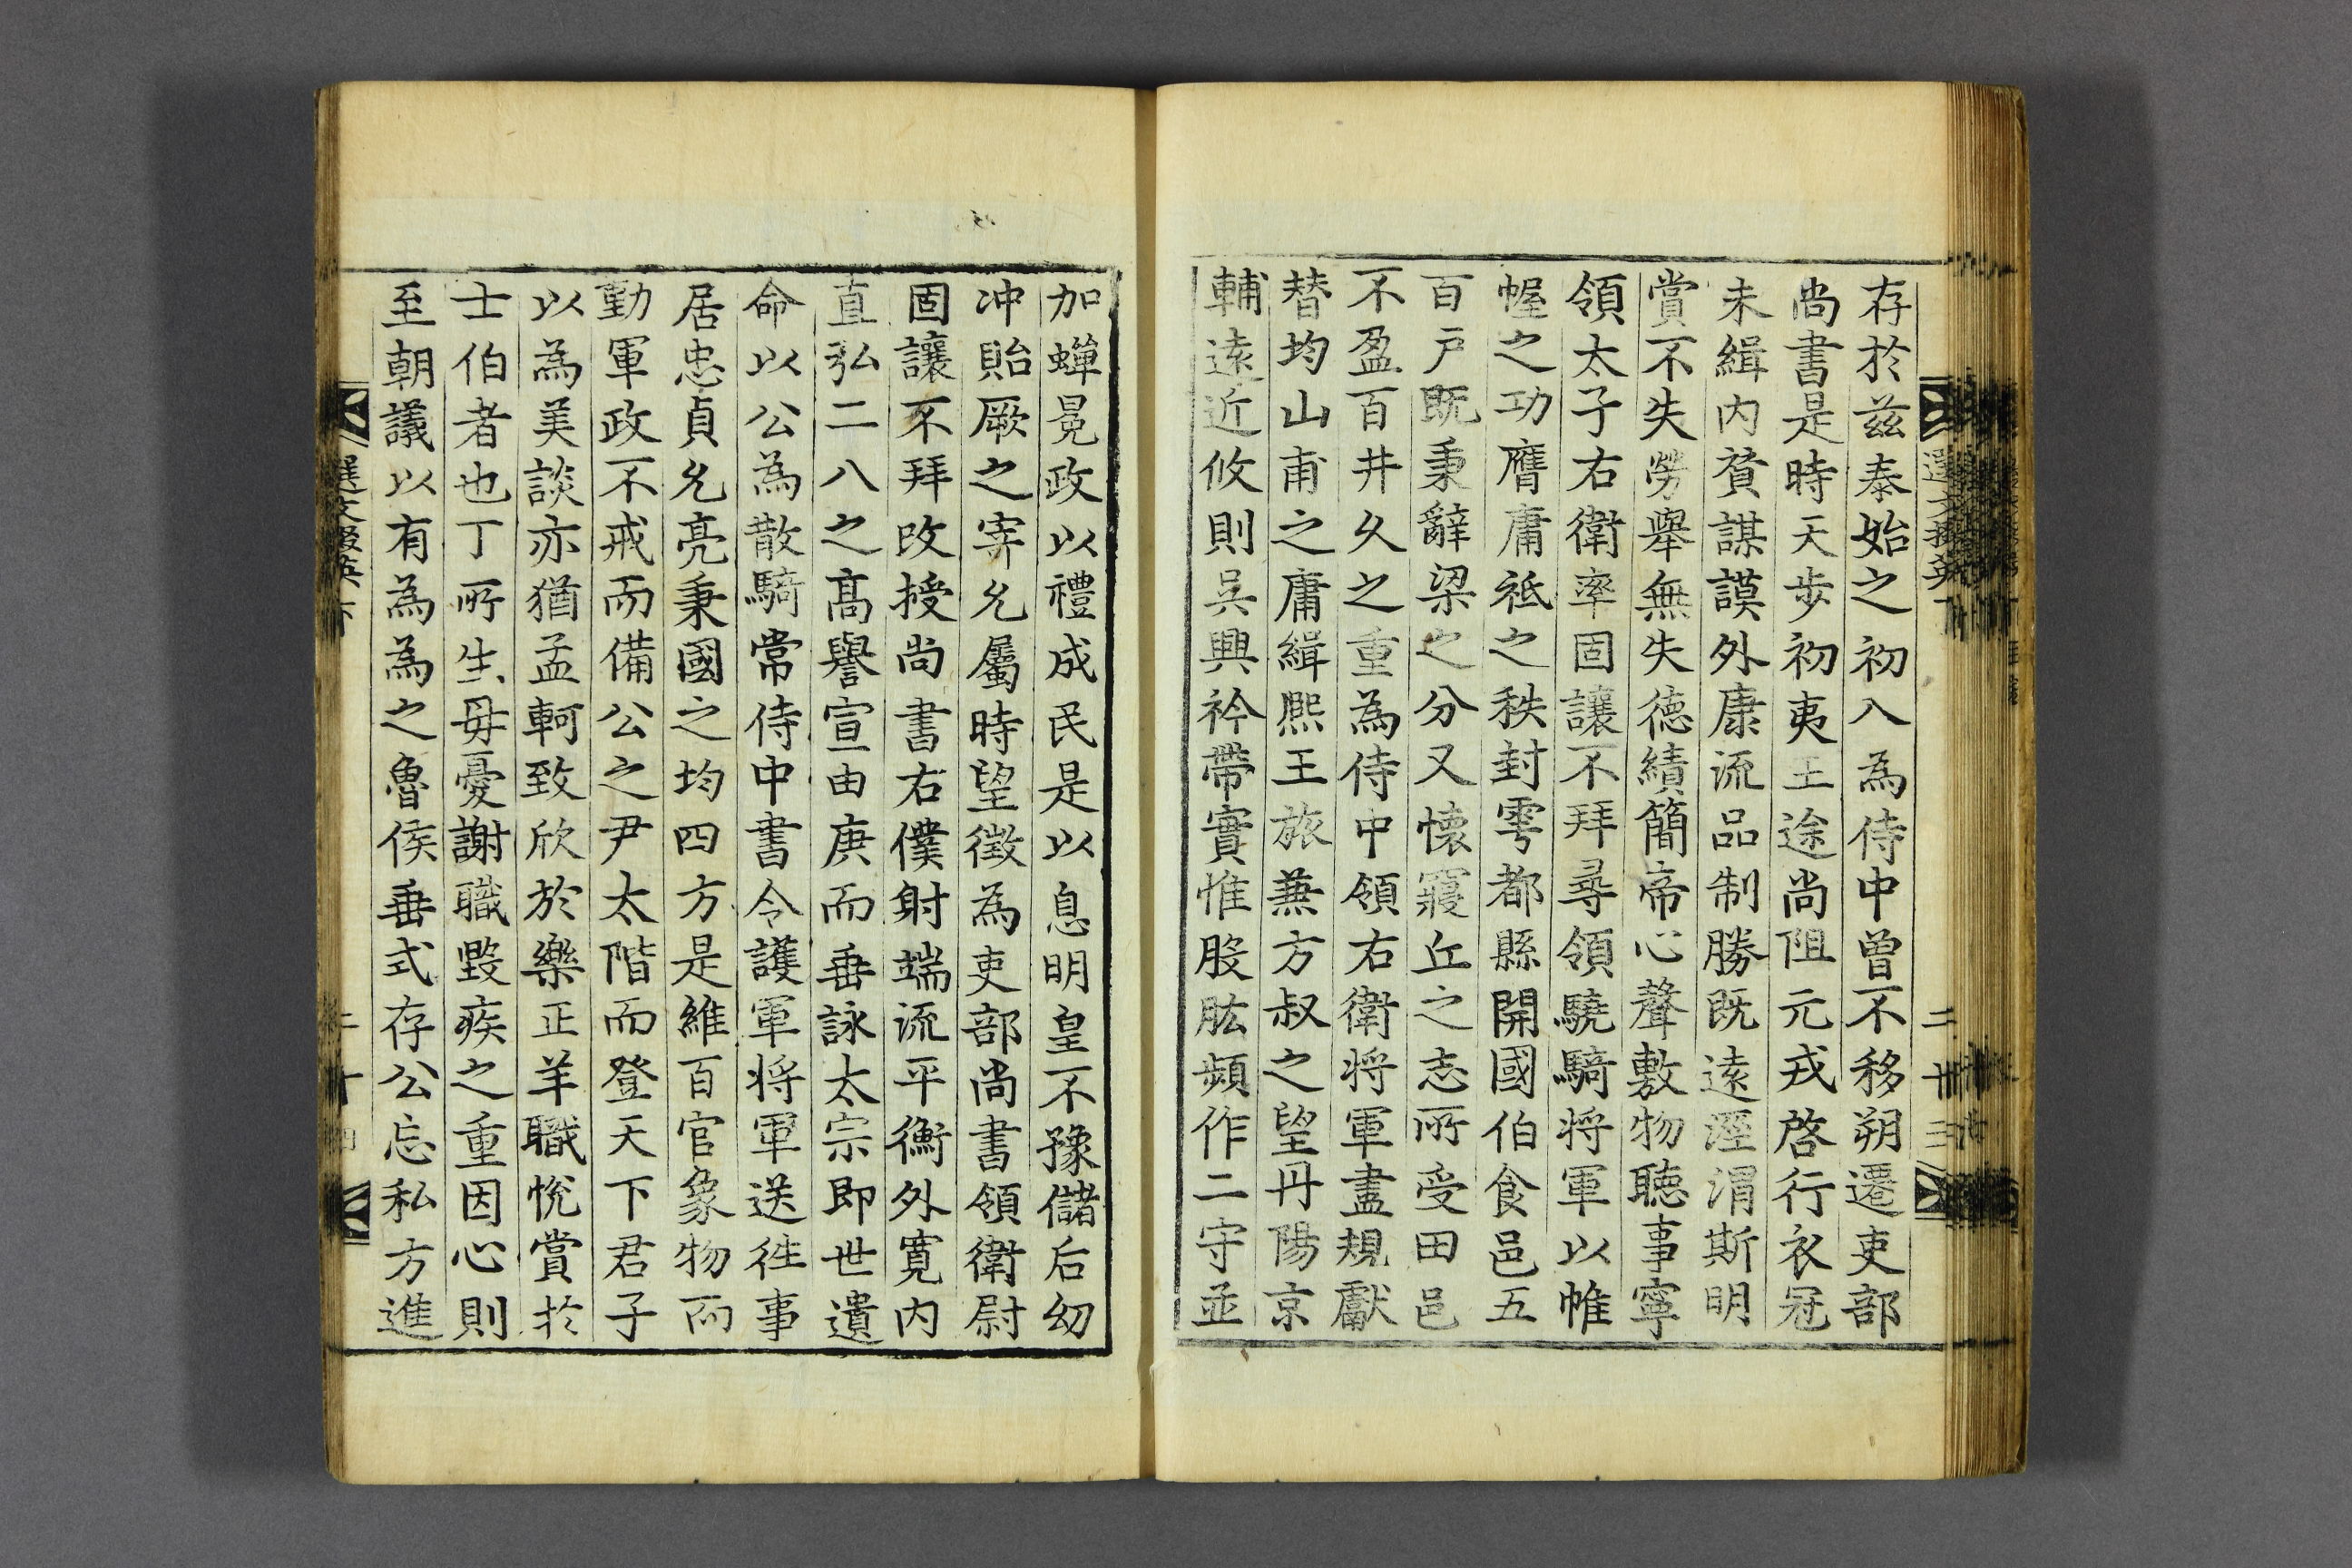 存於兹泰始之初入為侍中曾不移朔遷吏部
尚書是時天步初夷王途尚阻元戎啓行衣冠
未緝内賛謀謨外康流品制勝既遠涇渭斯明
賞不失勞舉無失徳績簡帝心聲敷物聴事寧
領太子右衛率固讓不拜尋領驍騎将軍以帷
幄之功膺庸祗之秩封雩都縣開國伯食邑五
百户既秉辭梁之分又懐寢丘之志所受田邑
不盈百井乆之重為侍中領右衛将軍盡規獻
替均山甫之庸緝熈王旅兼方叔之望丹陽京
輔遠近攸則吴興衿帶實惟股肱頻作二守並
加蟬冕政以禮成民是以息明皇不豫儲后幼
冲貽厥之寄允屬時望徵為吏部尚書領衛尉
固讓不拜改授尚書右僕射端流平衡外寛内
直弘二八之高譽宣由庚而垂詠太宗即世遺
命以公為散騎常侍中書令護軍将軍送徃事
居忠貞允亮秉國之均四方是維百官象物而
動軍政不戒而備公之尹太階而登天下君子
以為美談亦猶孟軻致欣於樂正羊職恱賞於
士伯者也丁所生母憂謝職毀疾之重因心則
至朝議以有為為之魯侯垂式存公忘私方進
選文掇英下
二十四